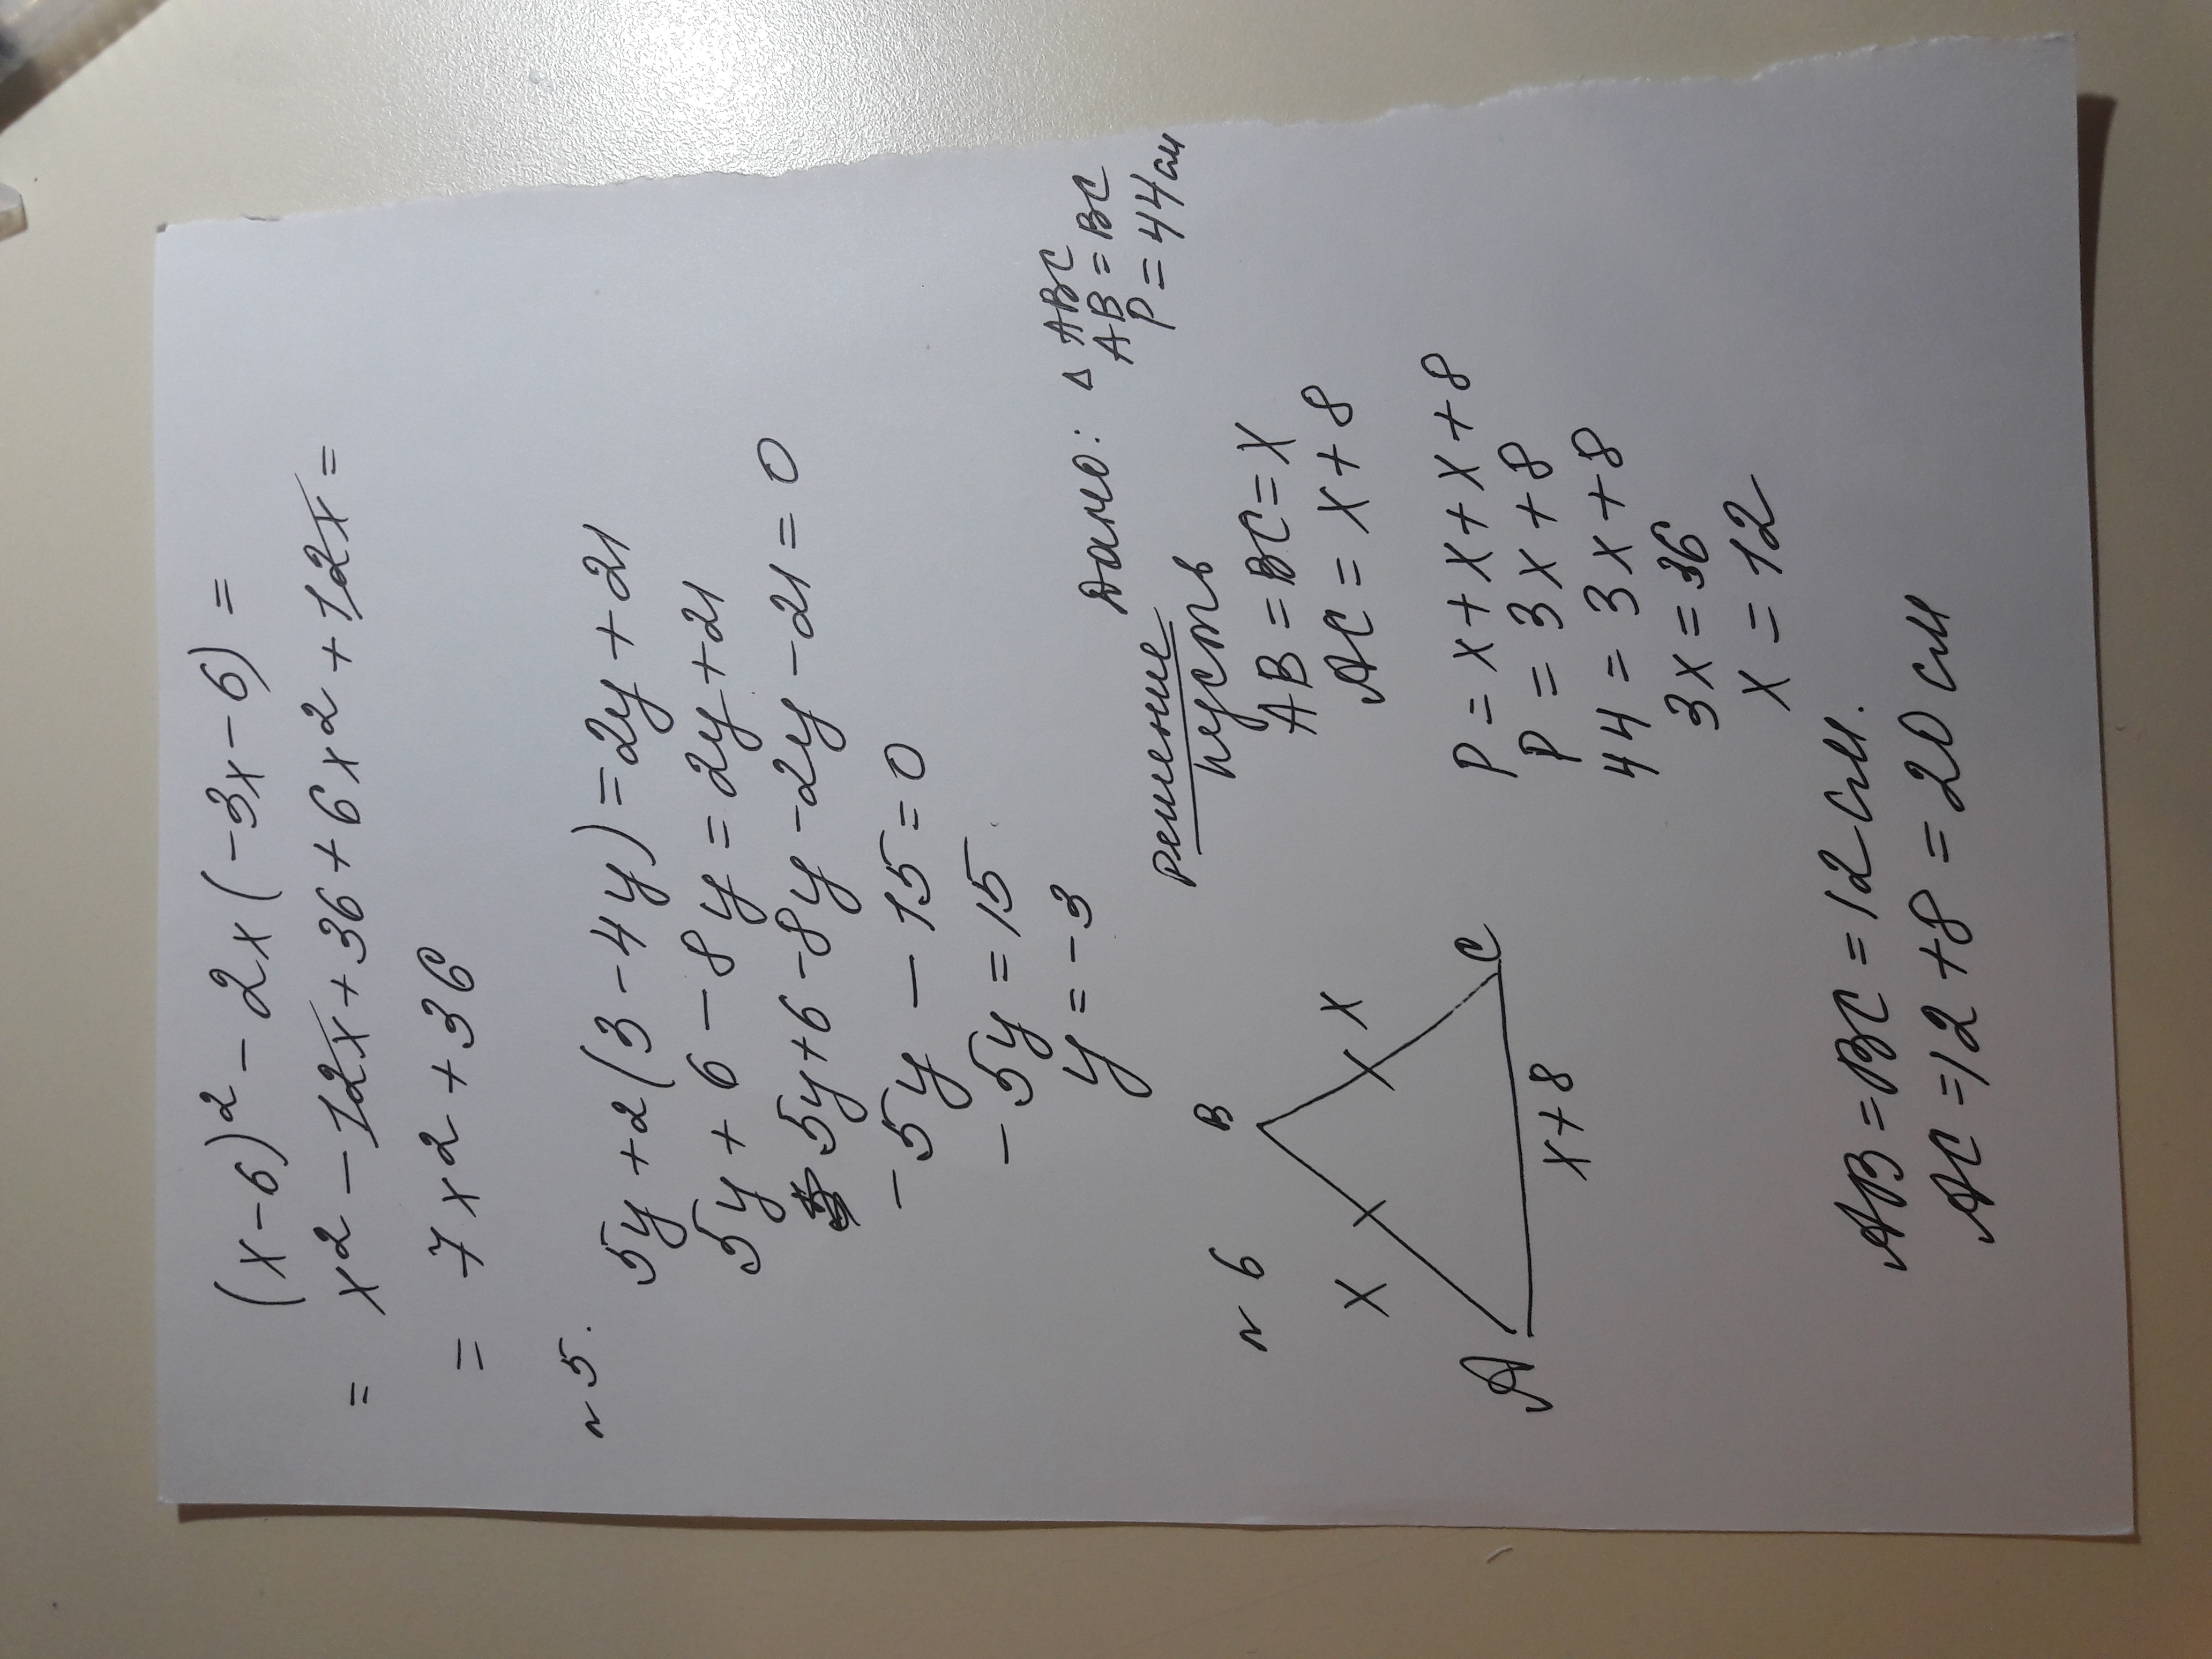 (x-6)² - 2x(-3x-6) =
= x² - 12x + 36 + 6x² + 12x =
= 7x² + 36
n 5.
5y + 2(3 - 4y) = 2y + 21
5y + 6 - 8y = 2y + 21
5y + 6 - 8y - 2y - 21 = 0
-5y - 15 = 0
-5y = 15
y = -3
n 6
B
x
x
A
C
x+8
Дано: Δ ABC
AB = BC
P = 44 см
Решение
Пусть
AB = BC = x
AC = x + 8
P = x + x + x + 8
P = 3x + 8
44 = 3x + 8
3x = 36
x = 12
AB = BC = 12 см.
AC = 12 + 8 = 20 см